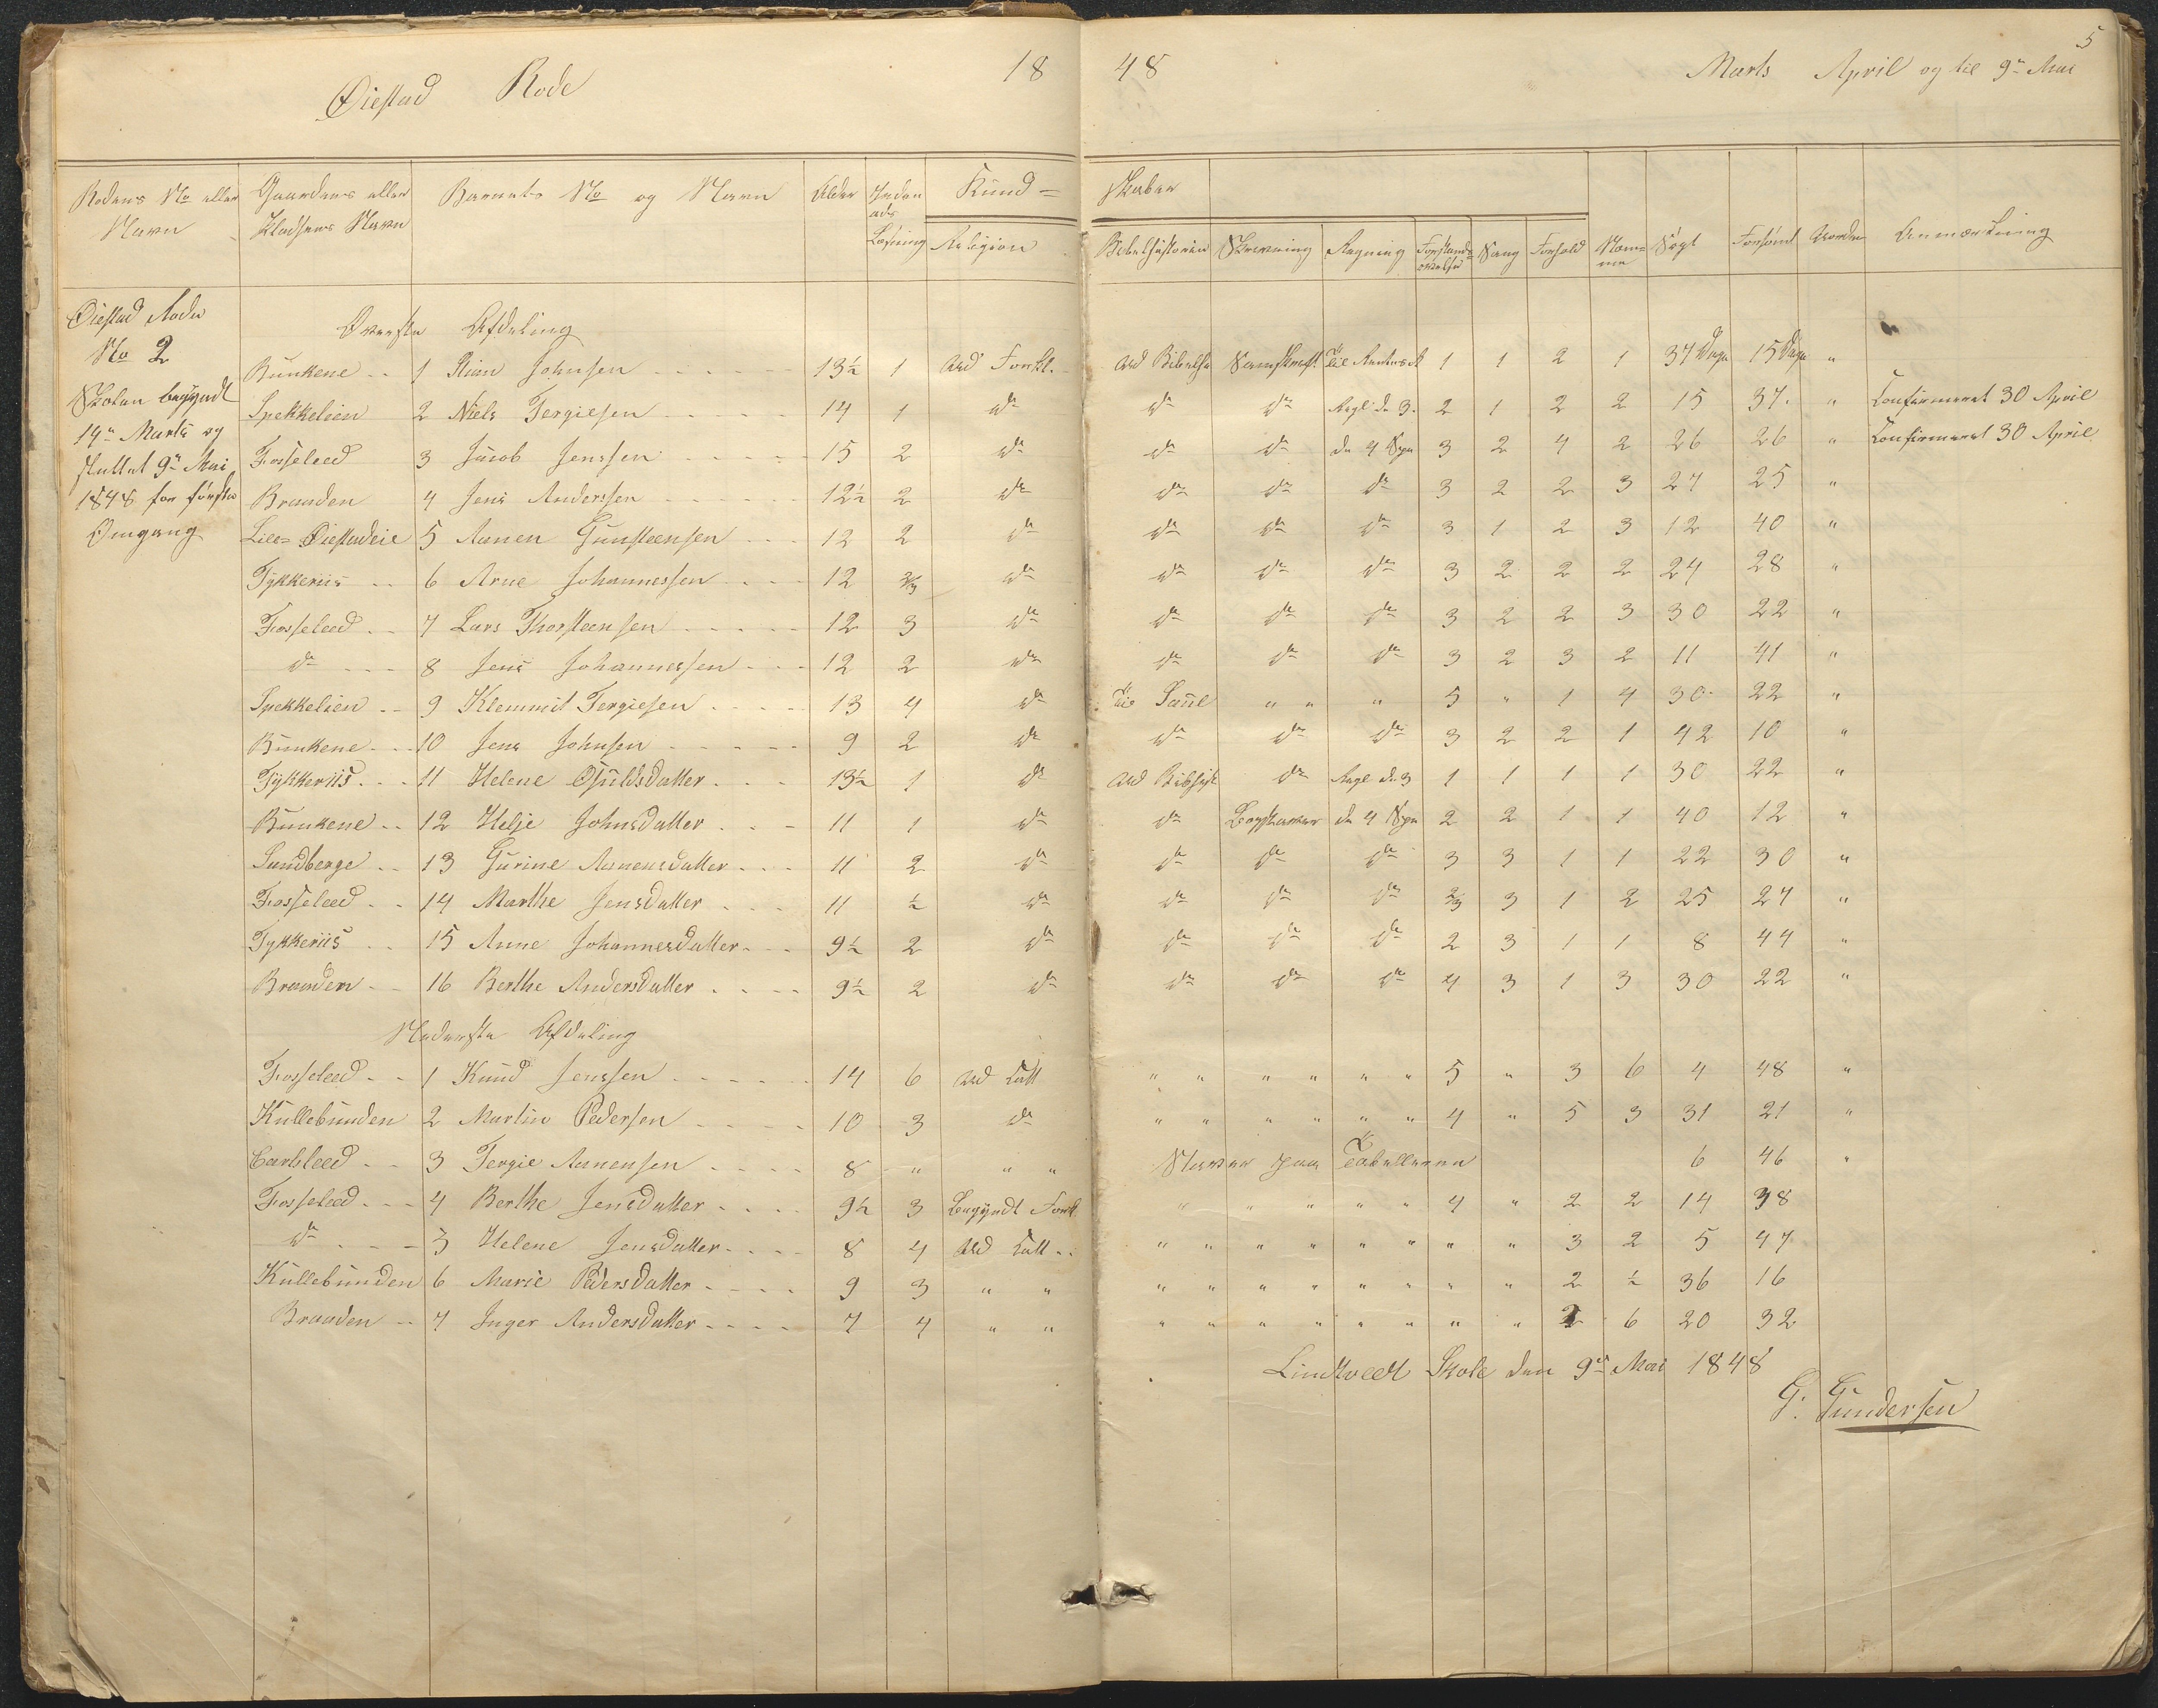 5
Øiestad Rode 18 48 Marts April og til 9de Mai
Rodens No eller Navn | Gaardens eller Pladsens Navn | Barnets No og Navn | Alder | Læsning | Kund= | skaber
Religion | Bibelhistorien | Skrivning | Regning | Forstands øvelse | Sang | Forhold | Søgt | Forsømt | Anmærkning
Øiestad Rode
No 2
Skolen begyndt
14de Marts og
sluttet 9de Mai
1848 for første
Omgang
Øverste Afdeling
Bunkene 1 Johnsen 13½ 1 Ud Forkl. Ud Bibelhi 1 1 2 1 37 Dage 15 Dage "
Spekkelien 2 Niels Tergiesen 14 1 do do do Regl: de 3. 2 1 2 2 15 37. " Confirmeret 30 April
Fosseleed 3 Jacob Jenssen 15 2 do do do de 4 Spe 3 2 4 2 26 26 " Confirmeret 30 April
Braaden 4 Jens Anderssen 12½ 2 do do do do 3 2 2 3 27 25 "
Lille Øiestadeie 5 Aanen Gunsteensen 12 2 do do do do 3 1 2 3 12 40 "
Tykkeriis 6 Arne Johannessen 12 2/3 do do do do 3 2 2 2 24 28 "
Fosseleed 7 Lars Thorsteensen 12 3 do do do do 3 2 2 3 30 22 "
do 8 Jens Johannessen 12 2 do do do do 3 2 3 2 11 41 "
Spekkelien 9 Klemmit Tergiesen 13 4 do Til Saul " " " 5 " 1 4 30 22 "
Bunkene 10 Jens Johnsen 9 2 do do do do 3 2 2 1 42 10 "
Tykkeriis 11 Helene Osuldsdatter 13½ 1 do Ud Bibhist do Regl de 3 1 1 1 1 30 22 "
Bunkene 12 Helje Johnsdatter 11 1 do do Bogstaver de 4 Spe 2 2 1 1 40 12 "
Sundberge 13 Gurine Aanensdatter 11 2 do do do do 3 3 1 1 22 30 "
Fosseleed 14 Marthe Jensdatter 11 ½ do do do do 2/3 3 1 2 25 27 "
Tykkeriis 15 Anne Johannesdatter 9½ 2 do do do do 2 3 1 1 8 44 "
Braaden 16 Berthe Andersdatter 9½ 2 do do do do 4 3 1 3 30 22 "
Nederste Afdeling
Fosseleed 1 Knud Jenssen 14 6 Ud Catt " " " " " " 5 " 3 6 4 48 "
Kullebunden 2 Martin Pedersen 10 3 do " " " " " " 4 " 5 3 31 21 "
Carlsleed 3 Tergie Aanensen 8 " " " Staver paa Tabellerne 6 46 "
Fosseleed 4 Berthe Jensdatter 9½ 3 Begyndt Forkl " " " " " 4 " 2 2 14 38
do 5 Helene Jensdatter 8 4 Ud Catt " " " " " " " " 3 2 5 47
Kullebunden 6 Marie Pedersdatter 9 3 " " " " " " " " " " 2 ½ 36 16
Braaden 7 Inger Andersdatter 7 4 " " " " " " " " " " 2 6 20 32
Lindtvedt Skole den 9de Mai 1848
G. Gundersen